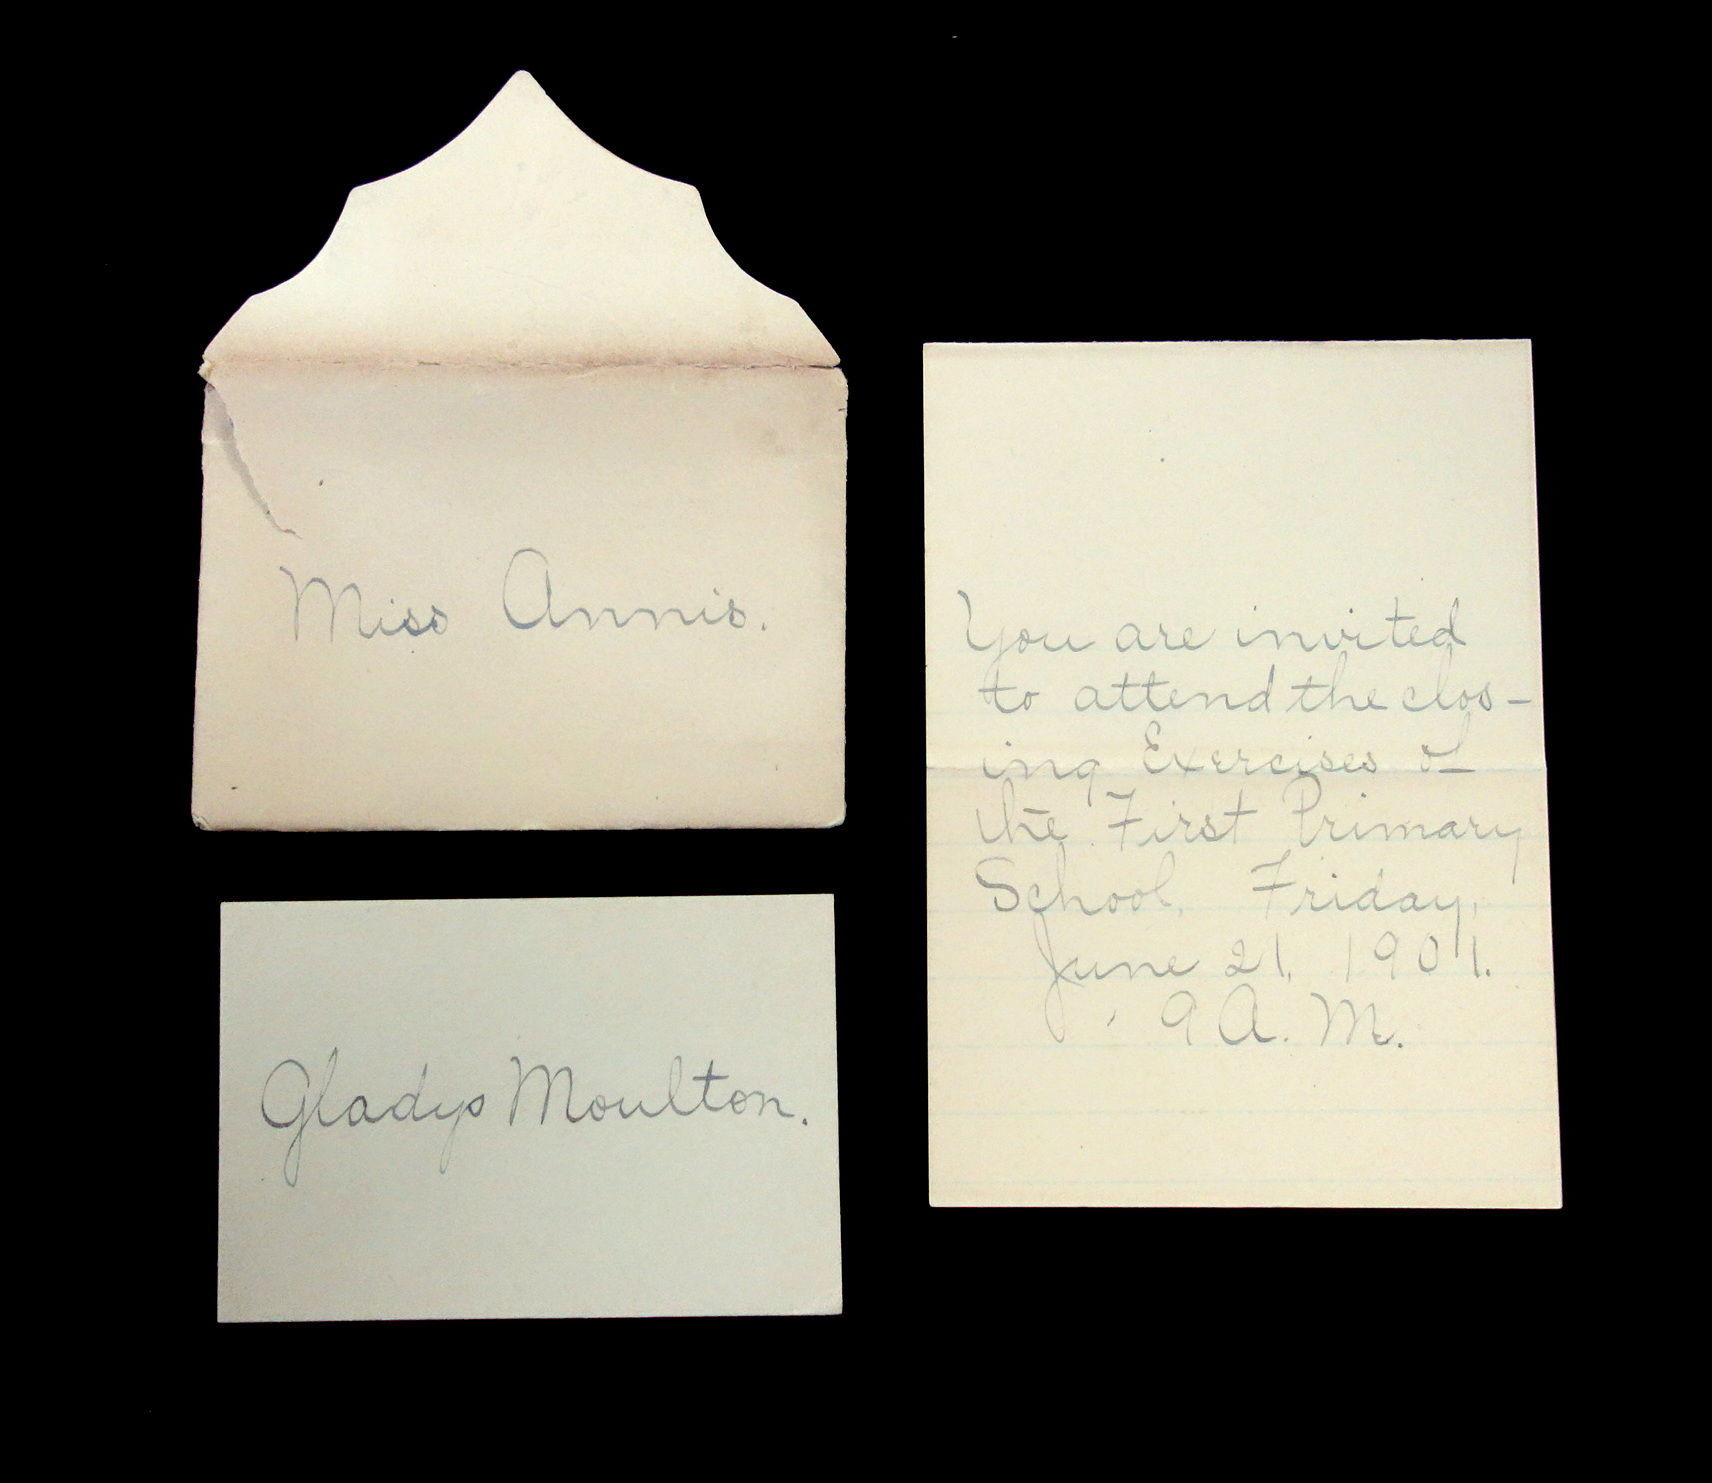 Miss Annis.
Gladys Moulton.
You are invited
to attend the clos-
ing Exercises of
the First Primary
School, Friday,
June 21, 1901.
9 A. M.